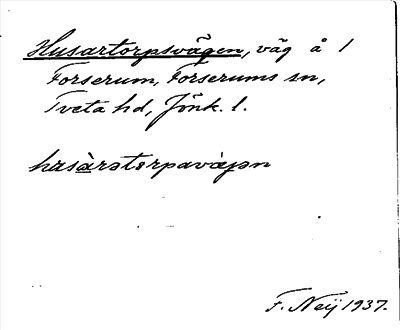 Husartorpsvägen, väg å 1
Forserum, Forserums sn,
Tveta hd, Jönk. l.
husàrətorpavàɟən
F. Neij 1937.